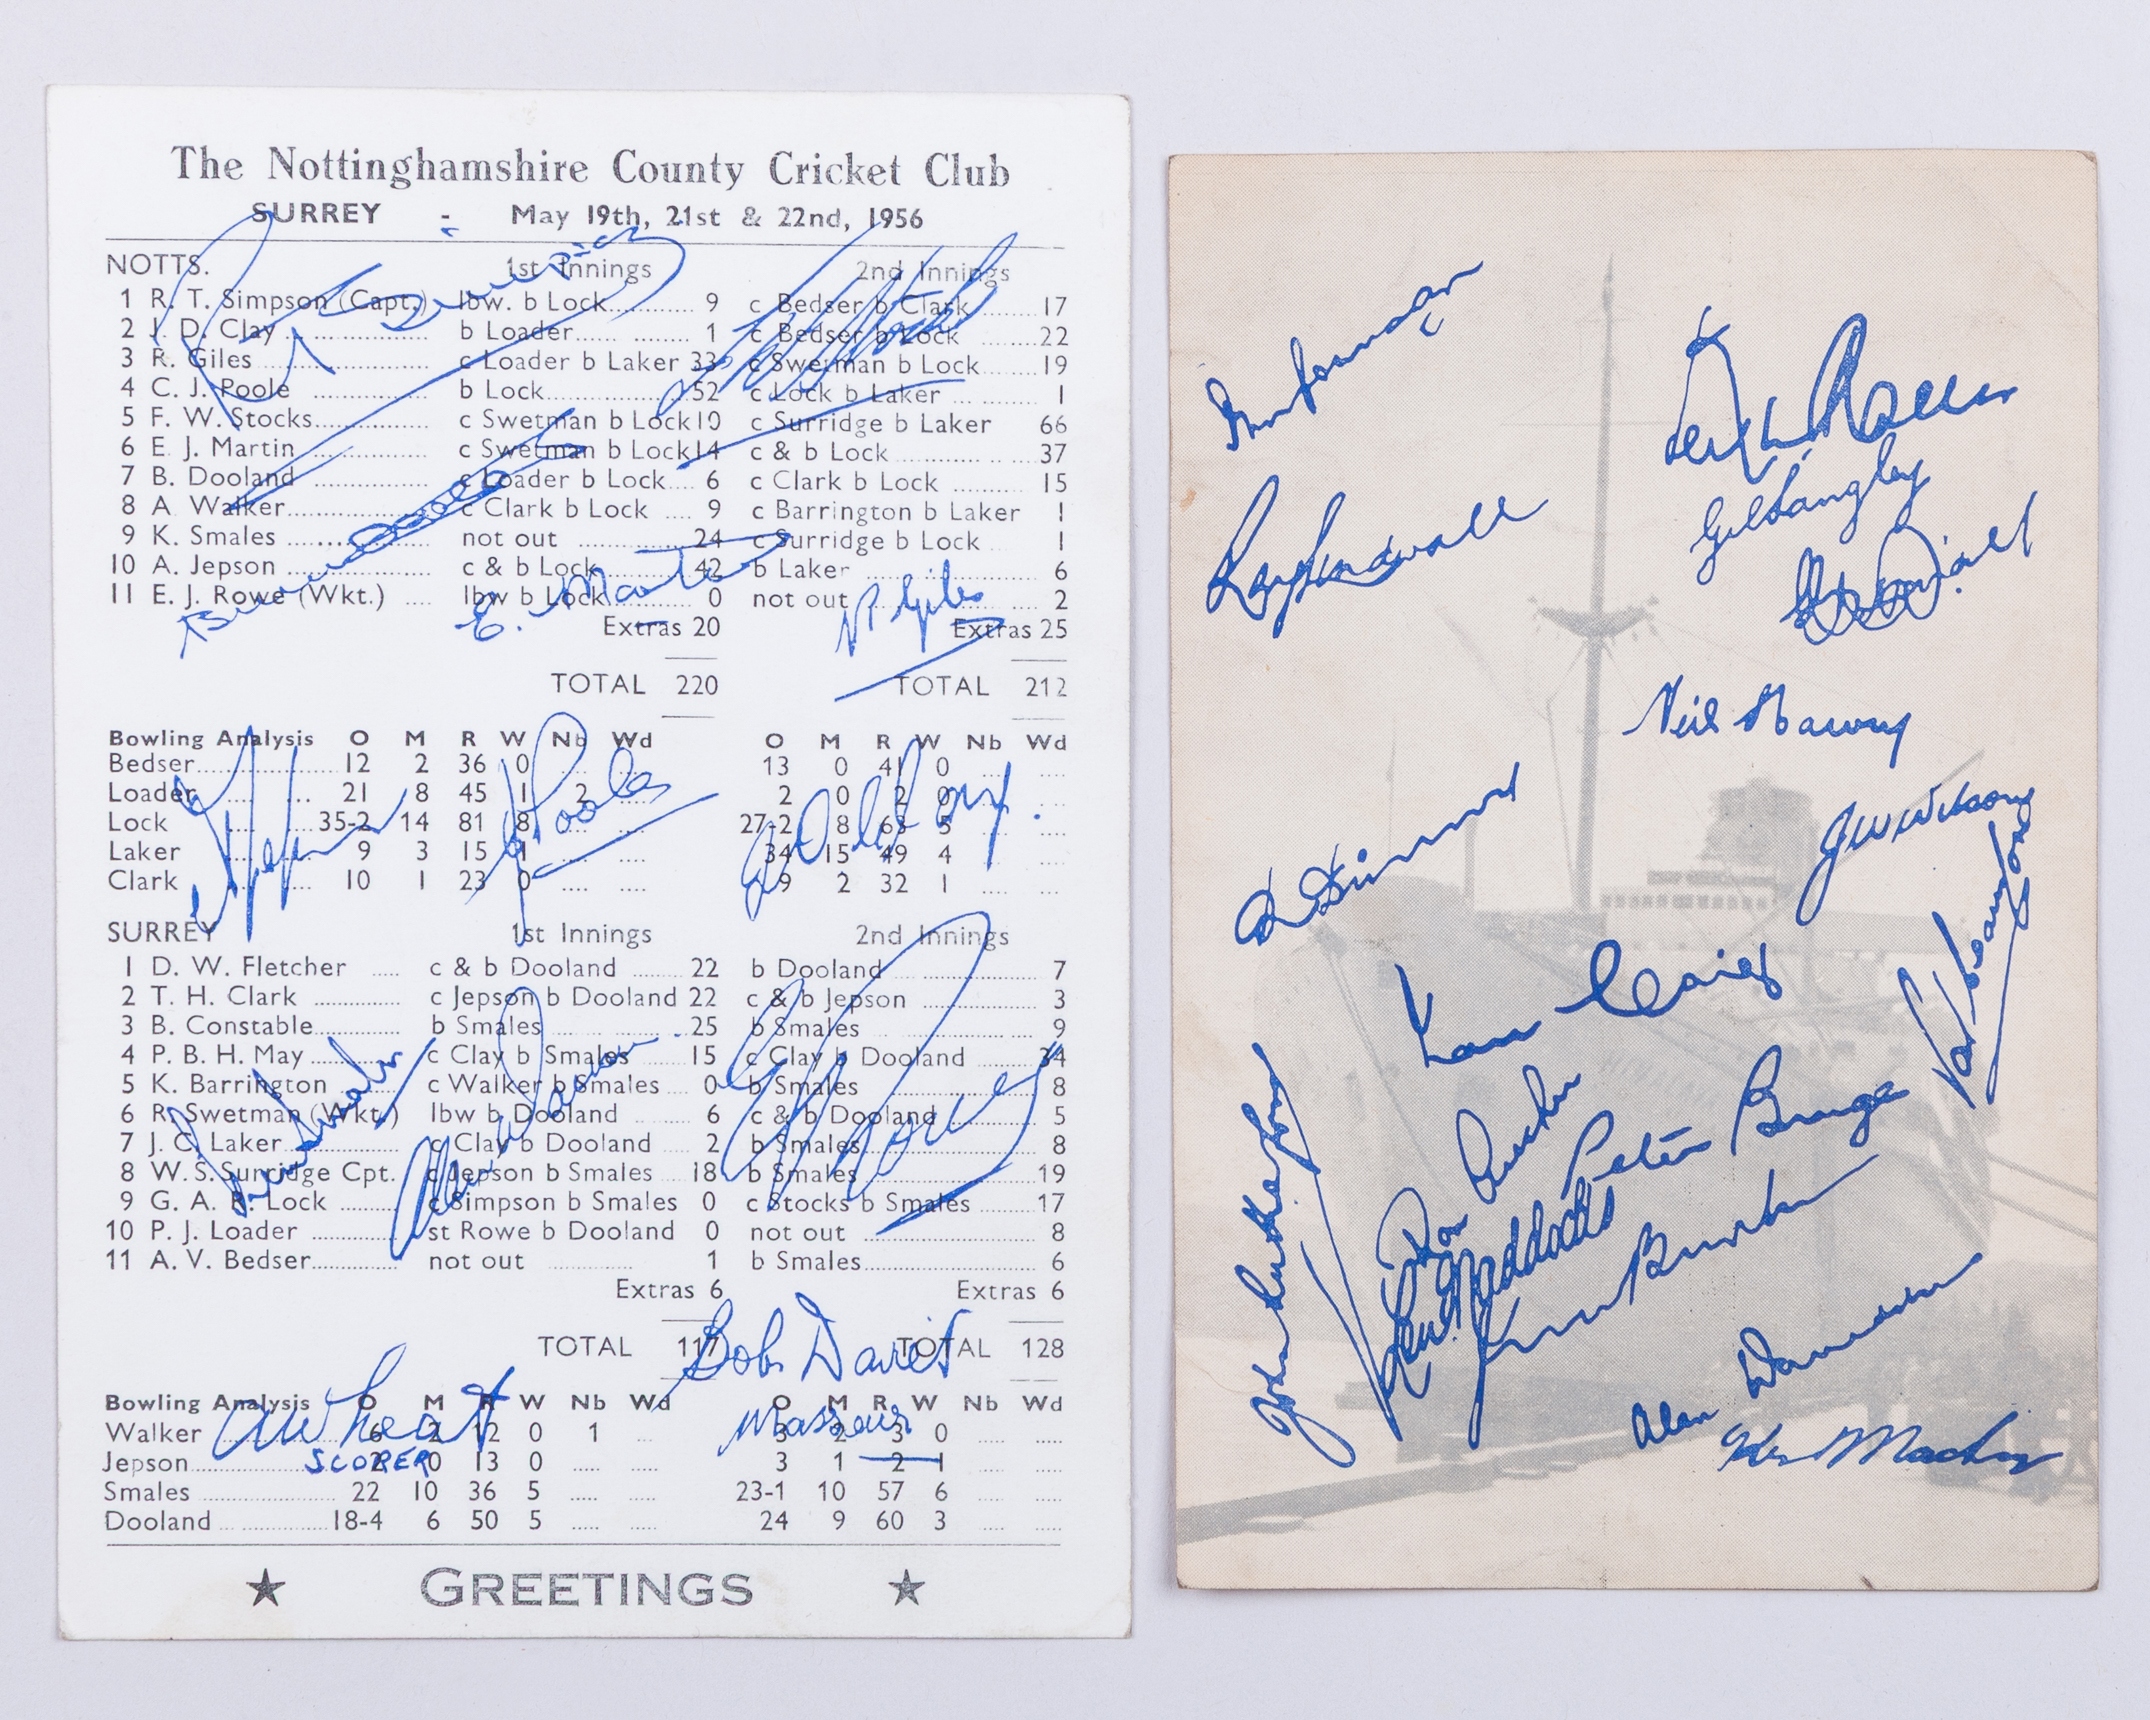 The Nottinghamshire County Cricket Club
SURREY - May 19th, 21st & 22nd, 1956
NOTTS. 1st Innings 2nd Innings
1 R. T. Simpson (Capt.) lbw. b Lock 9 c Bedser b Clark 17
2 J. D. Clay b Loader 1 c Bedser b Lock 22
3 R. Giles c Loader b Laker 33 c Swetman b Lock 19
4 C. J. Poole b Lock 52 c Lock b Laker 1
5 F. W. Stocks c Swetman b Lock 10 c Surridge b Laker 66
6 E. J. Martin c Swetman b Lock 14 c & b Lock 37
7 B. Dooland c Loader b Lock 6 c Clark b Lock 15
8 A. Walker c Clark b Lock 9 c Barrington b Laker 1
9 K. Smales not out 24 c Surridge b Lock 1
10 A. Jepson c & b Lock 42 b Laker 6
11 E. J. Rowe (Wkt.) lbw b Lock 0 not out 2
Extras 20 Extras 25
TOTAL 220 TOTAL 212
Bowling Analysis O M R W Nb Wd O M R W Nb Wd
Bedser 12 2 36 0 13 0 41 0
Loader 21 8 45 1 2 2 0 2 0
Lock 35-2 14 81 8 27-2 8 63 5
Laker 9 3 15 1 34 15 49 4
Clark 10 1 23 0 9 2 32 1
SURREY 1st Innings 2nd Innings
1 D. W. Fletcher c & b Dooland 22 b Dooland 7
2 T. H. Clark c Jepson b Dooland 22 c & b Jepson 3
3 B. Constable b Smales 25 b Smales 9
4 P. B. H. May c Clay b Smales 15 c Clay b Dooland 34
5 K. Barrington c Walker b Smales 0 b Smales 8
6 R. Swetman (Wkt.) lbw b Dooland 6 c & b Dooland 5
7 J. C. Laker c Clay b Dooland 2 b Smales 8
8 W. S. Surridge Cpt. c Jepson b Smales 18 b Smales 19
9 G. A. R. Lock c Simpson b Smales 0 c Stocks b Smales 17
10 P. J. Loader st Rowe b Dooland 0 not out 8
11 A. V. Bedser not out 1 b Smales 6
Extras 6 Extras 6
TOTAL 117 TOTAL 128
Bowling Analysis O M R W Nb Wd O M R W Nb Wd
Walker 6 2 12 0 1 3 2 3 0
Jepson 2 0 13 0 3 1 2 1
Smales 22 10 36 5 23-1 10 57 6
Dooland 18-4 6 50 5 24 9 60 3
GREETINGS
R T Simpson
Bruce Dooland
E. Martin
R Giles
Poole
Bob Davies
Masseur
A Wheat
SCORER
Ray Lindwall
Gil Langley
Neil Harvey
J W Wilson
R Benaud
Ian Craig
Pat Crawford
Peter Burge
Ron Archer
Len Maddocks
John Rutherford
Alan Davidson
Ken Mackay